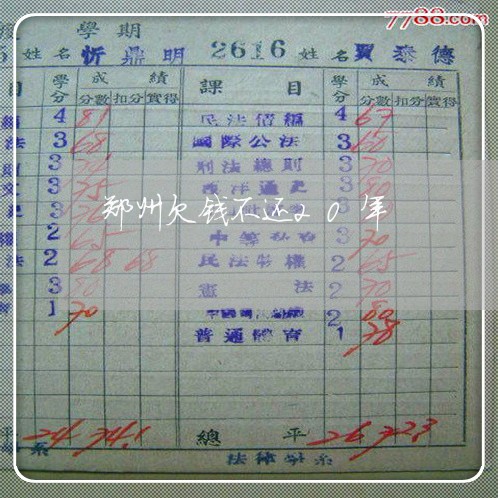 7788.com
學期
姓名 忻鼎明 2616 姓名 賈泰德
目 學分 成績 課目 學分 成績
分數 扣分 實得 分數 扣分 實得
4 81 民法債編 4 67
法 3 68 國際公法 3 60
3 刑法總則 3 70
3 75 西洋通史 3 80
3 76 3
郑州欠钱不还20年
權 2 3 70
法 2 68 68 民法物權 2 65
3 80 憲法 2 70
育 1 70 2 80
普通體育 1 78
平 24 74.1 總平 26 72.3
系 法律學系